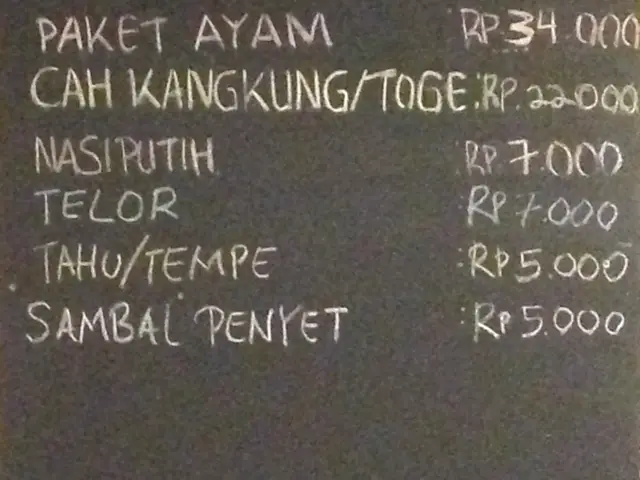 PAKET AYAM RP.34.000
CAH KANGKUNG/TOGE:RP.22000
NASI PUTIH RP7.000
TELOR RP7.000
TAHU/TEMPE :RP5.000
SAMBAL PENYET :RP5.000